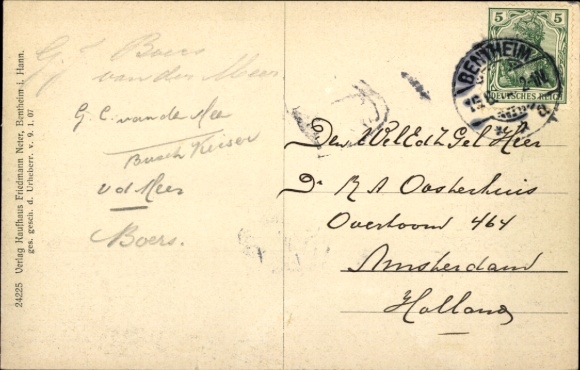 24225 Verlag Kaufhaus Friedmann Neter, Bentheim i. Hann.
ges. gesch. d. Urheberr. v. 9. 1. 07
G. J. Boers
van der Meer
G. C. van de Mee
Busch Keiser
v d Meer
Boers.
5 5
DEUTSCHES REICH
BENTHEIM
Den WelEdZGel Heer
Dr R A Oosterhuis
Overtoom 464
Amsterdam
Holland